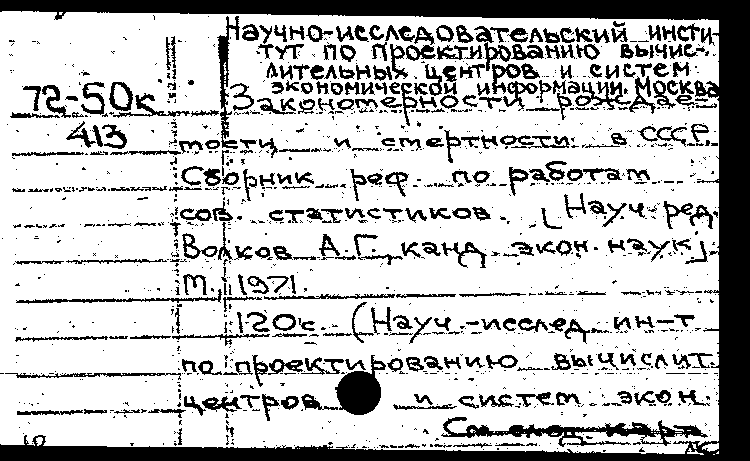 Научно-исследовательский инсти-
тут по проектированию вычис-
лительных центров и систем
экономической информации. Москва
72-50к
Закономерности рождае-
413
мости и смертности в СССР.
Сборник реф. по работам
сов. статистиков. [Науч. ред.
Волков А.Г., канд. экон. наук]
М., 1971.
120с. (Науч.-исслед. ин-т
по проектированию вычислит.
центров и систем экон.
См. след. карт